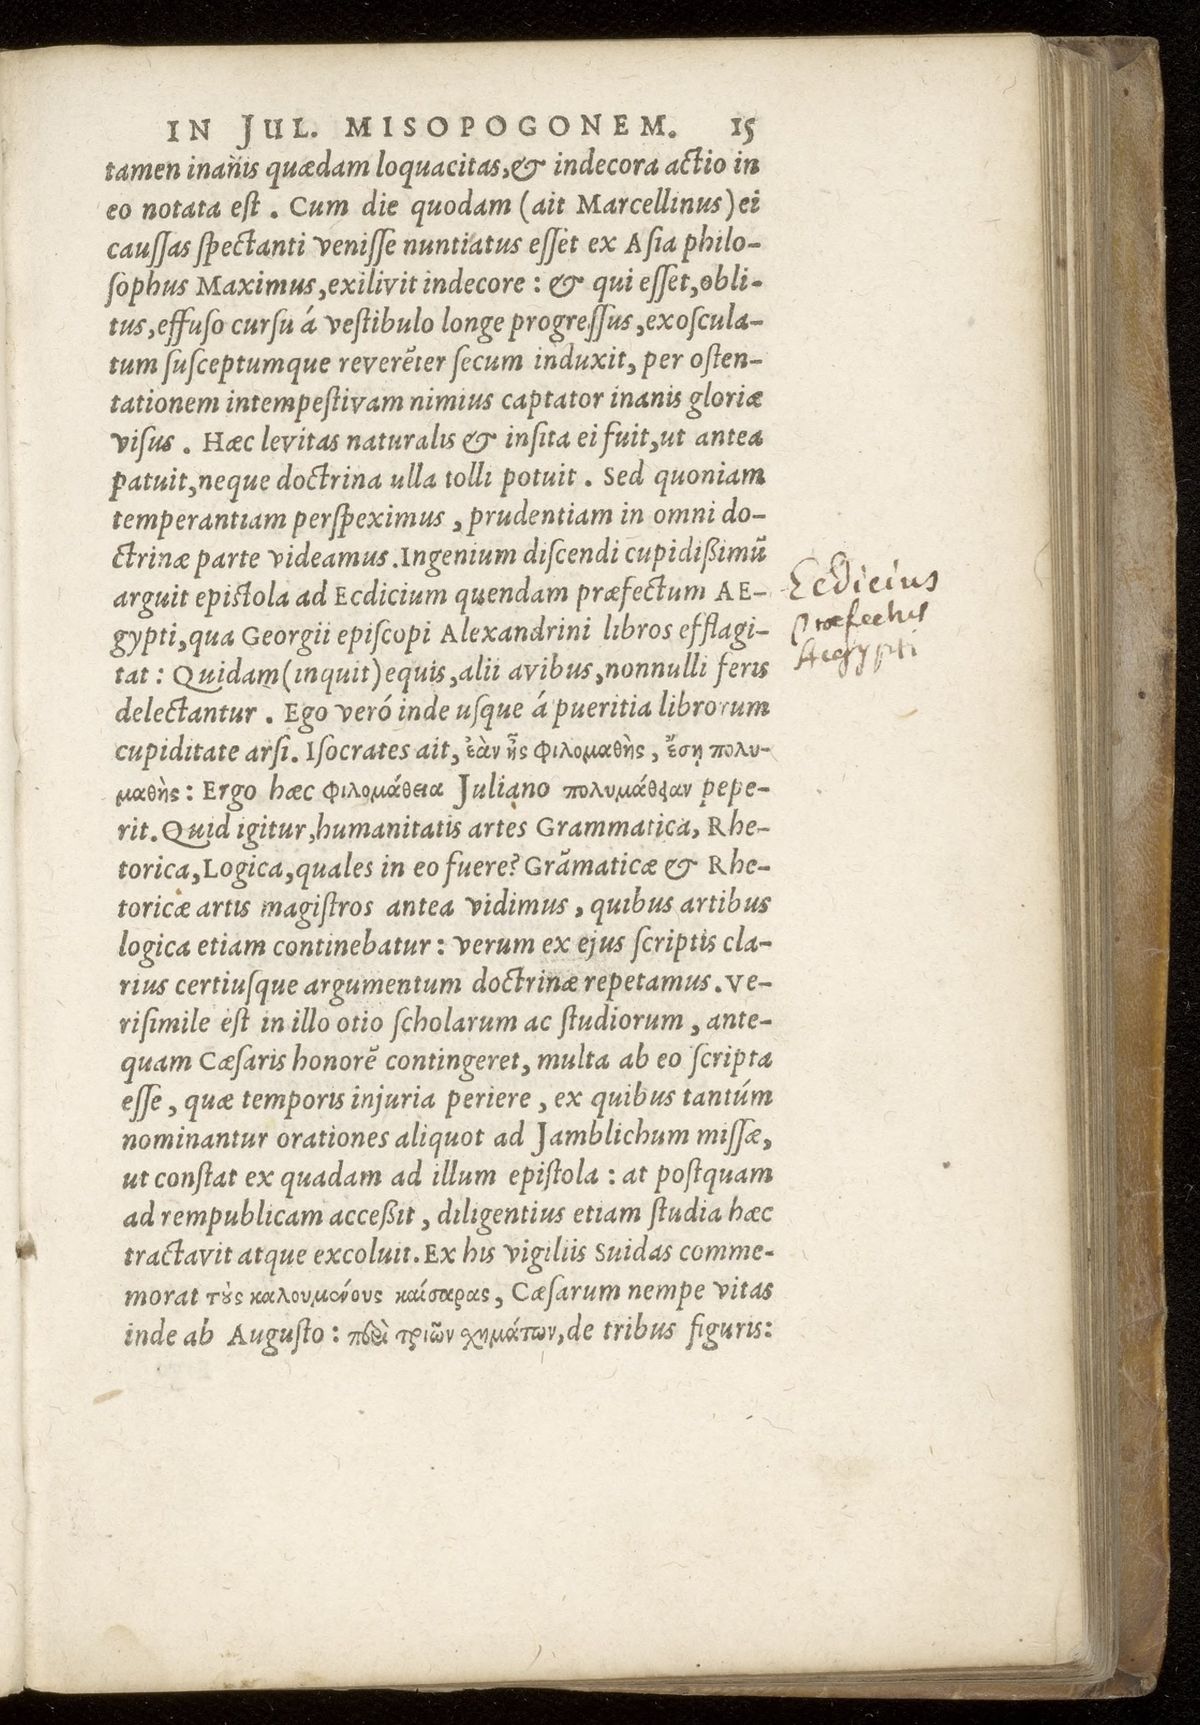 IN JUL. MISOPOGONEM. 15
tamen inañis quædam loquacitas, & indecora actio in
eo notata est. Cum die quodam (ait Marcellinus) ei
caussas spectanti venisse nuntiatus esset ex Asia philo-
sophus Maximus, exilivit indecore: & qui esset, obli-
tus, effuso cursu á vestibulo longe progressus, exoscula-
tum susceptumque reverēter secum induxit, per osten-
tationem intempestivam nimius captator inanis gloriæ
visus. Hæc levitas naturalis & insita ei fuit, ut antea
patuit, neque doctrina ulla tolli potuit. Sed quoniam
temperantiam perspeximus, prudentiam in omni do-
ctrinæ parte videamus. Ingenium discendi cupidißimū
arguit epistola ad Ecdicium quendam præfectum AE-
gypti, qua Georgii episcopi Alexandrini libros efflagi-
tat: Quidam (inquit) equis, alii avibus, nonnulli feris
delectantur. Ego veró inde usque á pueritia librorum
cupiditate arsi. Isocrates ait, ἐὰν ᾖς φιλομαθὴς, ἔσῃ πολυ-
μαθὴς: Ergo hæc φιλομάθεια Juliano πολυμάθειαν pepe-
rit. Quid igitur, humanitatis artes Grammatica, Rhe-
torica, Logica, quales in eo fuere? Grāmaticæ & Rhe-
toricæ artis magistros antea vidimus, quibus artibus
logica etiam continebatur: verum ex ejus scriptis cla-
rius certiusque argumentum doctrinæ repetamus. Ve-
risimile est in illo otio scholarum ac studiorum, ante-
quam Cæsaris honorē contingeret, multa ab eo scripta
esse, quæ temporis injuria periere, ex quibus tantúm
nominantur orationes aliquot ad Jamblichum missæ,
ut constat ex quadam ad illum epistola: at postquam
ad rempublicam acceßit, diligentius etiam studia hæc
tractavit atque excoluit. Ex his vigiliis Suidas comme-
morat τοὺς καλουμένους καίσαρας, Cæsarum nempe vitas
inde ab Augusto: περὶ τριῶν χημάτων, de tribus figuris:
Ecdicius
præfectus
Aegypti